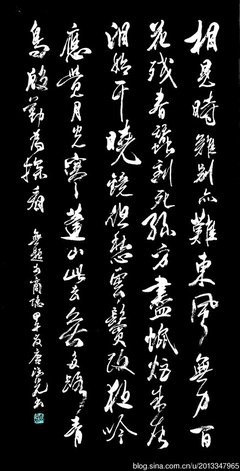 相見時難別亦難東風無力百
花殘春蠶到死絲方盡蠟炬成灰
淚始干曉鏡但愁雲鬢改夜吟
應覺月光寒蓬山此去無多路青
鳥殷勤為探看
無題李商隱
blog.sina.com.cn/u/2013347965